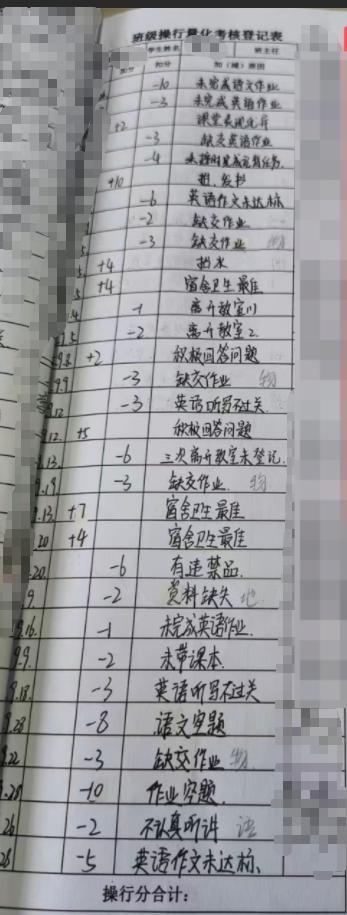 班级操行量化考核登记表
学生姓名 班主任
加分 扣分 加（减）原因
-10 未完成语文作业
-3 未完成英语作业
+2 课堂表现优异
-3 缺交英语作业
-4 未按时完成
+10 担.
-6 英语作文未达标
-2 缺交作业
-3 缺交作业 物
+4 担水
+4 宿舍卫生最佳
-1 离开教室1
-2 离开教室2
9.8. +2 积极回答问题
9.9 -3 缺交作业 物
9.12 -3 英语听写不过关.
9.12. +5 积极回答问题
9.13. -6 三次离开教室未登记.
9.19 -3 缺交作业. 物
9.13. +7 宿舍卫生最佳
.20 +4 宿舍卫生最佳
.20. -6 有违禁品.
9. -2 资料缺失 地
9.16. -1 未完成英语作业.
9.9. -2 未带课本.
9.18. -3 英语听写不过关
9.28 -8 语文空题
9.22 -3 缺交作业 物.
.28 -10 作业空题.
26 -2 不认真听讲 语
28 -5 英语作文未达标、
操行分合计：